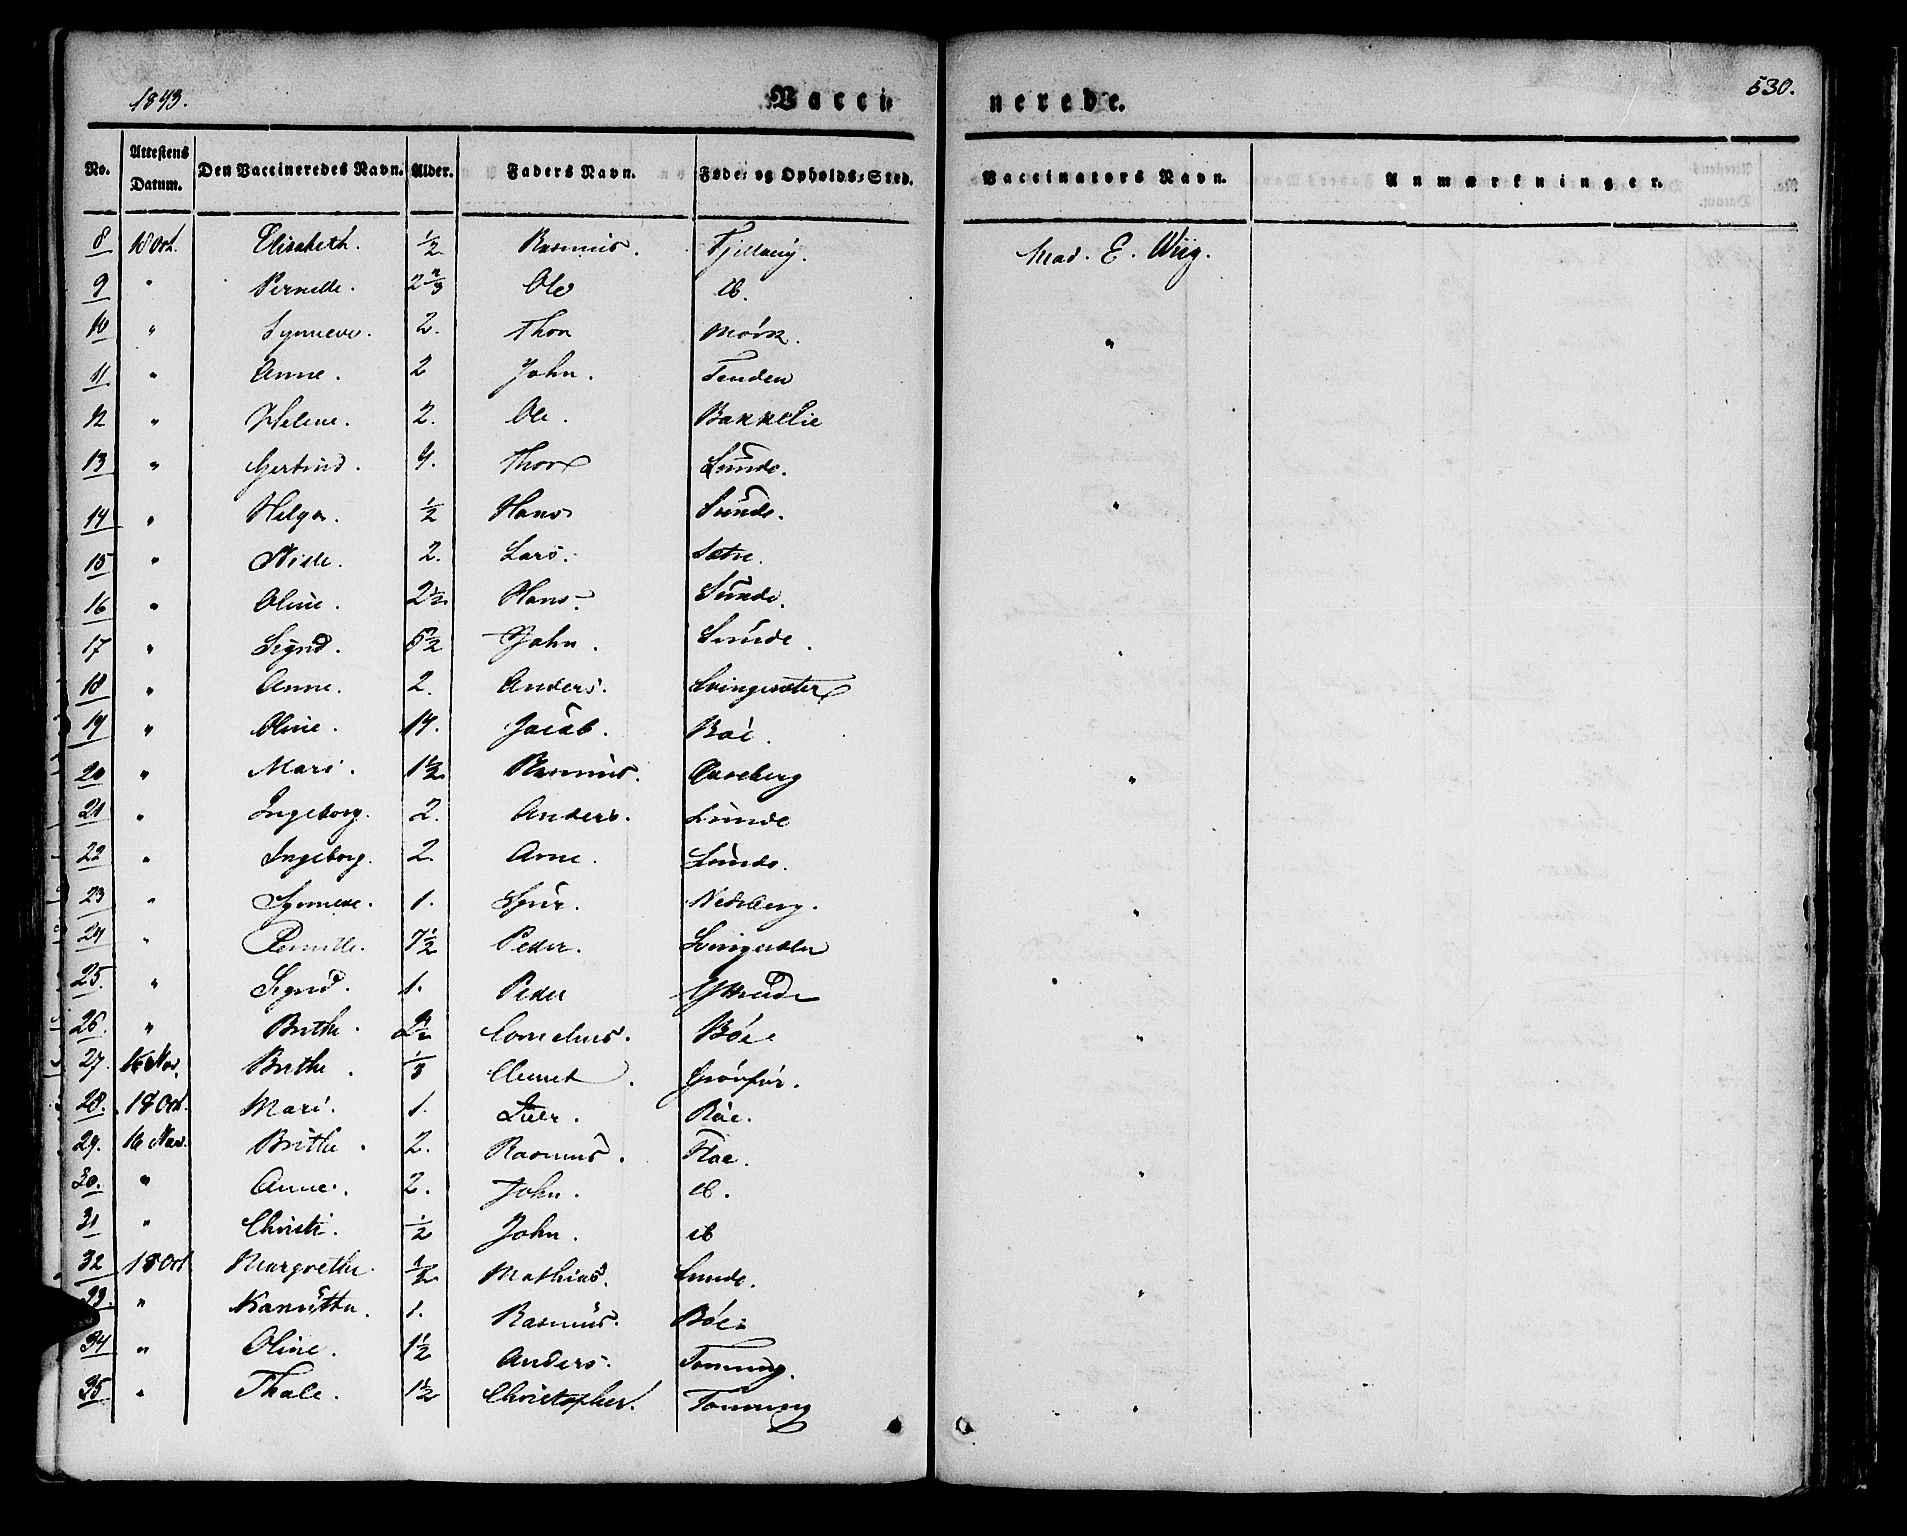 1843. Vacci- nerede. 530.
No. Attestens Datum. Den Vaccineredes Navn. Alder. Faders Navn. Føde- og Opholds-Sted. Vaccinators Navn. Anmærkninger.
8 18 Oct. Elisabeth. 1/2 Rasmus. Mad. E. Wiig.
9 " Pernille. Ole ib.
10 " Synneve. 2. Thor Mörk. "
11 " Anne. 2 John. Tenden
12 " Helene. 2. Ole. Bakkelie
13 " Gertrud. 4. Thor Lunde.
14 " Helga. 1/2 Hans Sunde. "
15 " 2. Lars. Sætre.
16 " Oline. 2 1/2 Hans. Sunde.
17 " Sigrid. 5 1/2 John. Sunde. "
18 " Anne. 2. Anders. Svingesæter
19 " Oline. 14. Jacob. Böe.
20 " Mari. 1 1/2 Rasmus. Auseberg "
21 " Ingeborg. 2. Anders. Lunde
22 " Ingeborg. 2. Arne. Lunde.
23 " Synneve. 1. Nedreberg. "
24 " Pernille. 7 1/2 Peder.
25. " Sigrid. 1. Peder "
26. " Brithe. 2 1/2 Cornelius. Böe "
27. 16 Nov. Brithe. 1/3 Clemet.
28. 18 Oct. Mari. 1. Iver. Böe.
29. 16 Nov. Brithe. 2. Rasmus. Floe.
30. " Anne. 2. John. ib. "
31 " Christi. 1/2 John. ib
32 18 Oct Margrethe. 1/2 Mathias. Lunde.
33. " 1. Rasmus. Böe "
34 " Oline. 1 1/2 Anders. Tonning.
35 " Thale. 1 1/2 Christopher. Tonning "